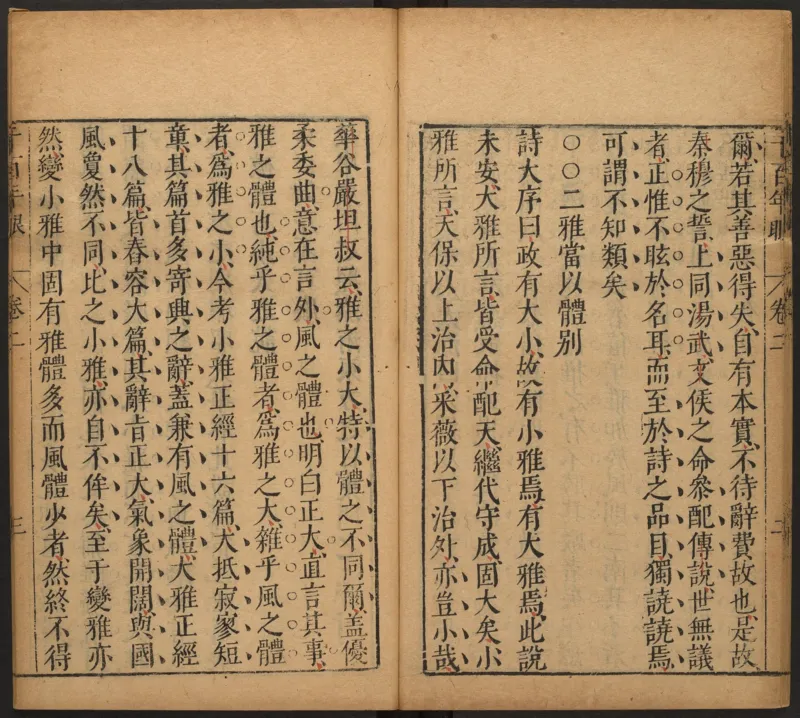 千百年眼 卷二 二
爾、若其善惡得失、自有本實、不待辭費故也、是故
秦穆之誓、上同湯武、文侯之命、參配傳說、世無議
者、正惟不眩於名耳、而至於詩之品目、獨譊譊焉、
可謂不知類矣
○○二雅當以體別
詩大序曰、政有大小、故有小雅焉、有大雅焉、此說
未安、大雅所言、皆受命配天、繼代守成、固大矣、小
雅所言、天保以上治內、采薇以下治外、亦豈小哉、
華谷嚴坦叔云、雅之小大、特以體之不同爾、蓋優
柔委曲、意在言外、風之體也、明白正大、直言其事、
雅之體也、純乎雅之體者、爲雅之大、雜乎風之體
者、爲雅之小、今考小雅正經十六篇、大抵寂寥短
章、其篇首多寄興之辭、蓋兼有風之體、大雅正經
十八篇、皆舂容大篇、其辭旨正大、氣象開闊、與國
風敻然不同、比之小雅、亦自不侔矣、至于變雅亦
然、變小雅中固有雅體多而風體少者、然終不得
千百年眼 卷二 三